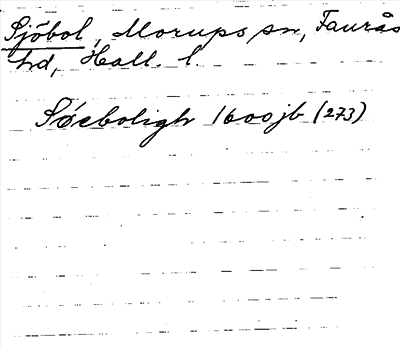 Sjöbol, Morups sn, Faurås
hd, Hall. l.
Söeboligh 1600 jb (273)